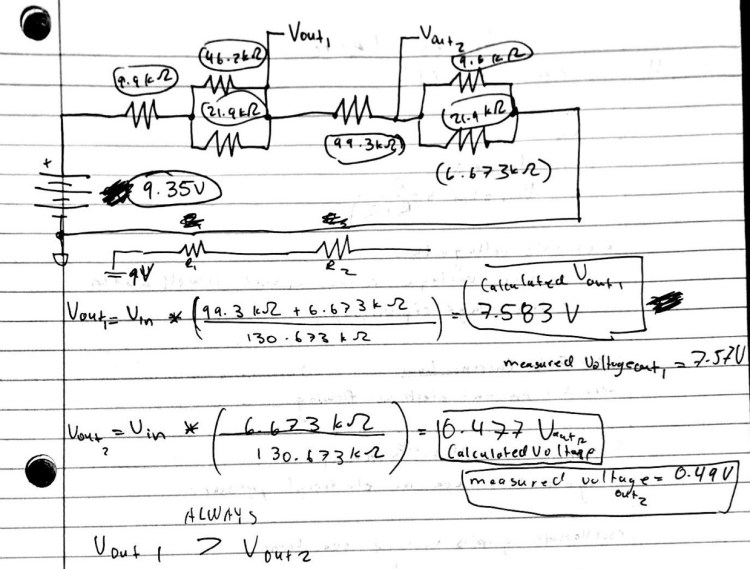 Vout₁
Vout₂
46.2kΩ
9.6kΩ
9.9kΩ
21.9kΩ
21.9kΩ
99.3kΩ
(6.673kΩ)
+
9.35V
9V
R₁
R₂
Vout₁ = Vin * (99.3 kΩ + 6.673 kΩ / 130.673 kΩ) = Calculated Vout₁
7.583 V
measured Voltageout₁ = 7.57V
Vout₂ = Vin * (6.673 kΩ / 130.673 kΩ) = 0.477 Vout₂
Calculated Voltage
measured voltage = 0.49V
out₂
ALWAYS
Vout₁ > Vout₂